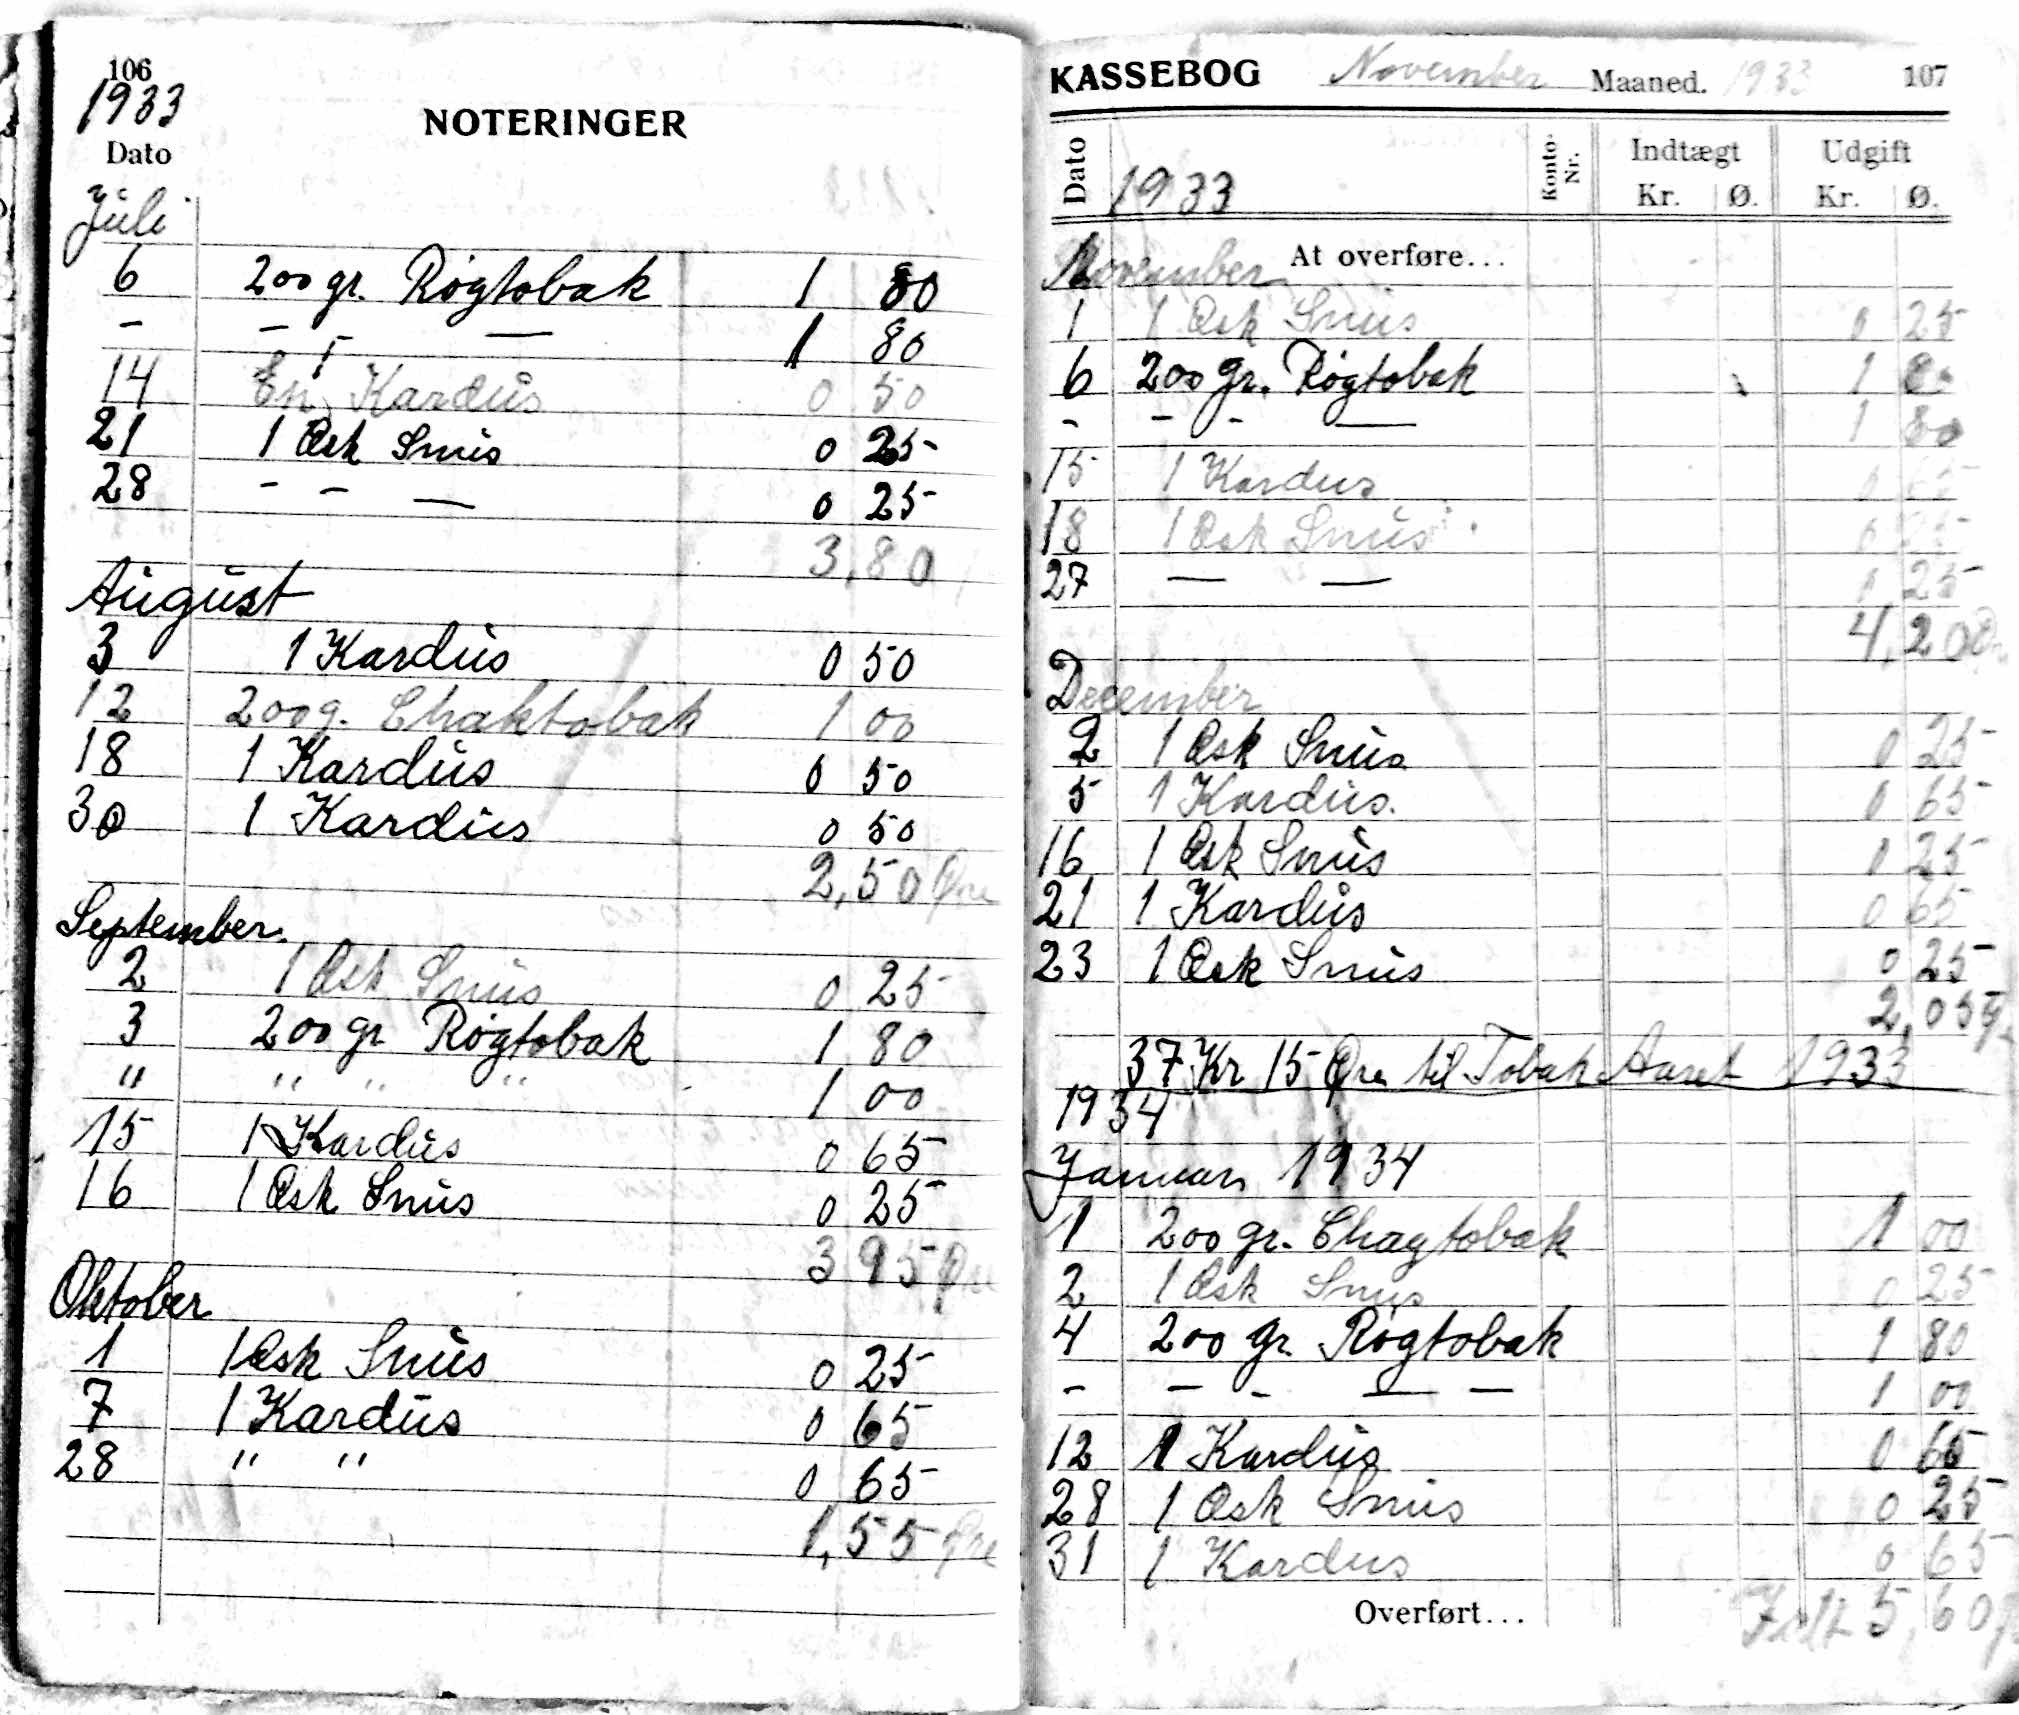 106
1933
NOTERINGER
Dato
Juli
6 200 gr. Røgtobak 1 80
- - - — 1 80
14 En Kardus 0 50
21 1 Æsk Snus 0 25
28 - - — 0 25
3,80
August
3 1 Kardus 0 50
12 200 g. Chaktobak 1 00
18 1 Kardus 0 50
30 1 Kardus 0 50
2,50 Øre
September.
2 1 Æsk Snus 0 25
3 200 gr Røgtobak 1 80
" " " " 1 00
15 1 Kardus 0 65
16 1 Æsk Snus 0 25
3 95 Øre
Oktober
1 1 Æsk Snus 0 25
7 1 Kardus 0 65
28 " " 0 65
1,55 Øre
KASSEBOG November Maaned. 1933 107
Dato 1933 Konto-Nr. Indtægt Udgift
Kr. Ø. Kr. Ø.
November At overføre...
1 1 Æsk Snus 0 25
6 200 gr. Røgtobak 1 80
- - - — 1 80
15 1 Kardus 0 65
18 1 Æsk Snus 0 25
27 — — 0 25
4,20
December
2 1 Æsk Snus 0 25
5 1 Kardus. 0 65
16 1 Æsk Snus 0 25
21 1 Kardus 0 65
23 1 Æsk Snus 0 25
2,05
37 Kr 15 Øre til Tobak Aaret 1933
1934
Januar 1934
1 200 gr. Chagtobak 1 00
2 1 Æsk Snus 0 25
4 200 gr. Røgtobak 1 80
- - - — — 1 00
12 1 Kardus 0 65
28 1 Æsk Snus 0 25
31 1 Kardus 0 65
Overført... 5,60